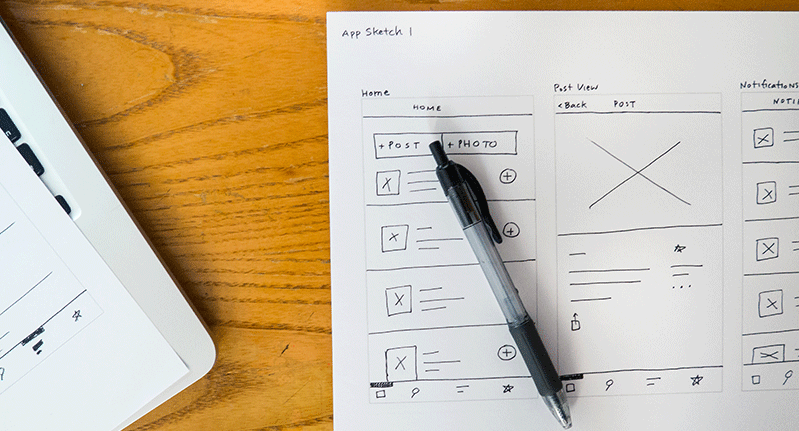 App Sketch 1
Home
HOME
+ POST
+ PHOTO
Post View
< Back POST
Notifications
NOTIF